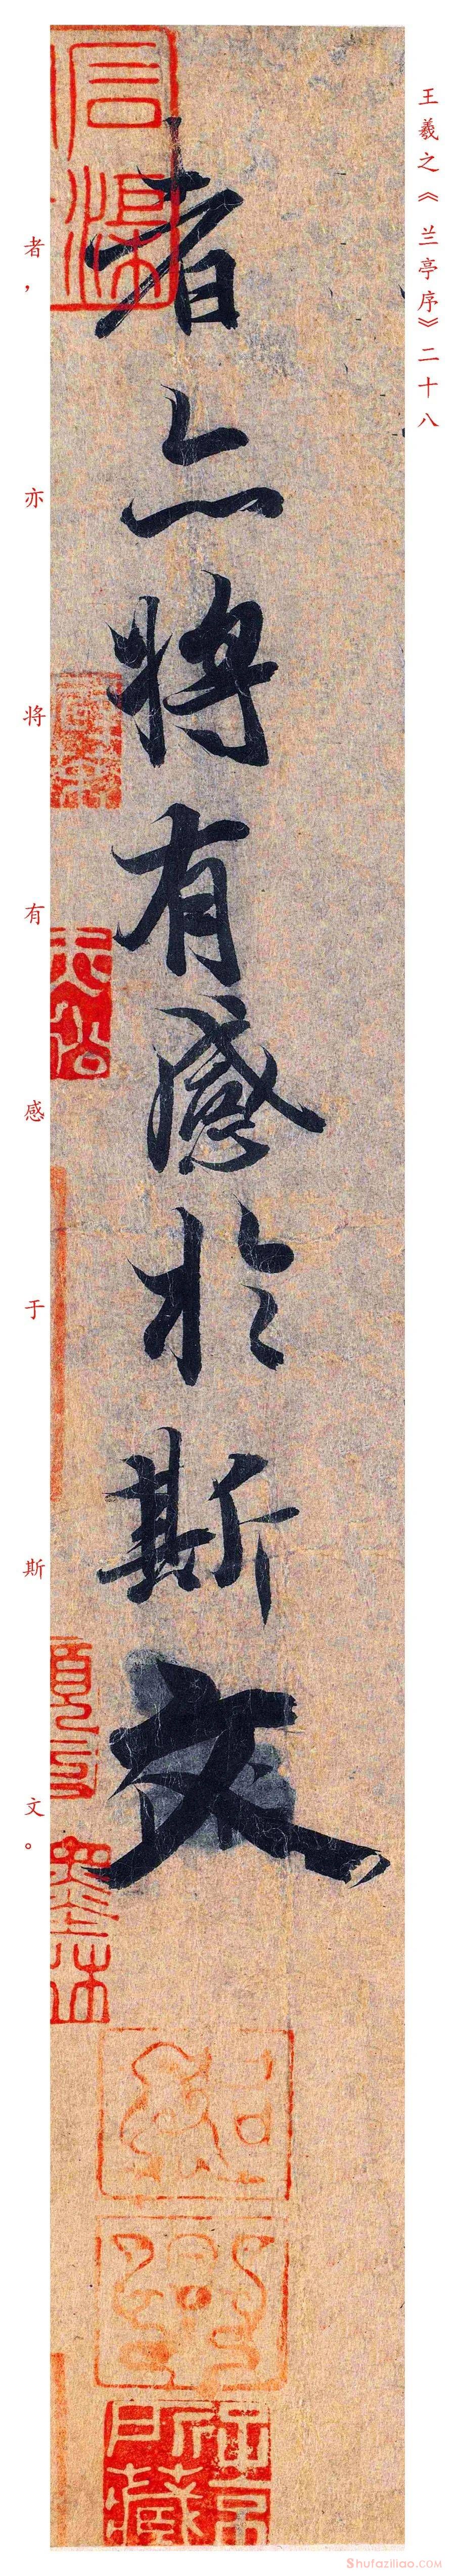 王羲之《兰亭序》二十八
者亦将有感於斯文
者，亦将有感于斯文。
Shufaziliao.COM